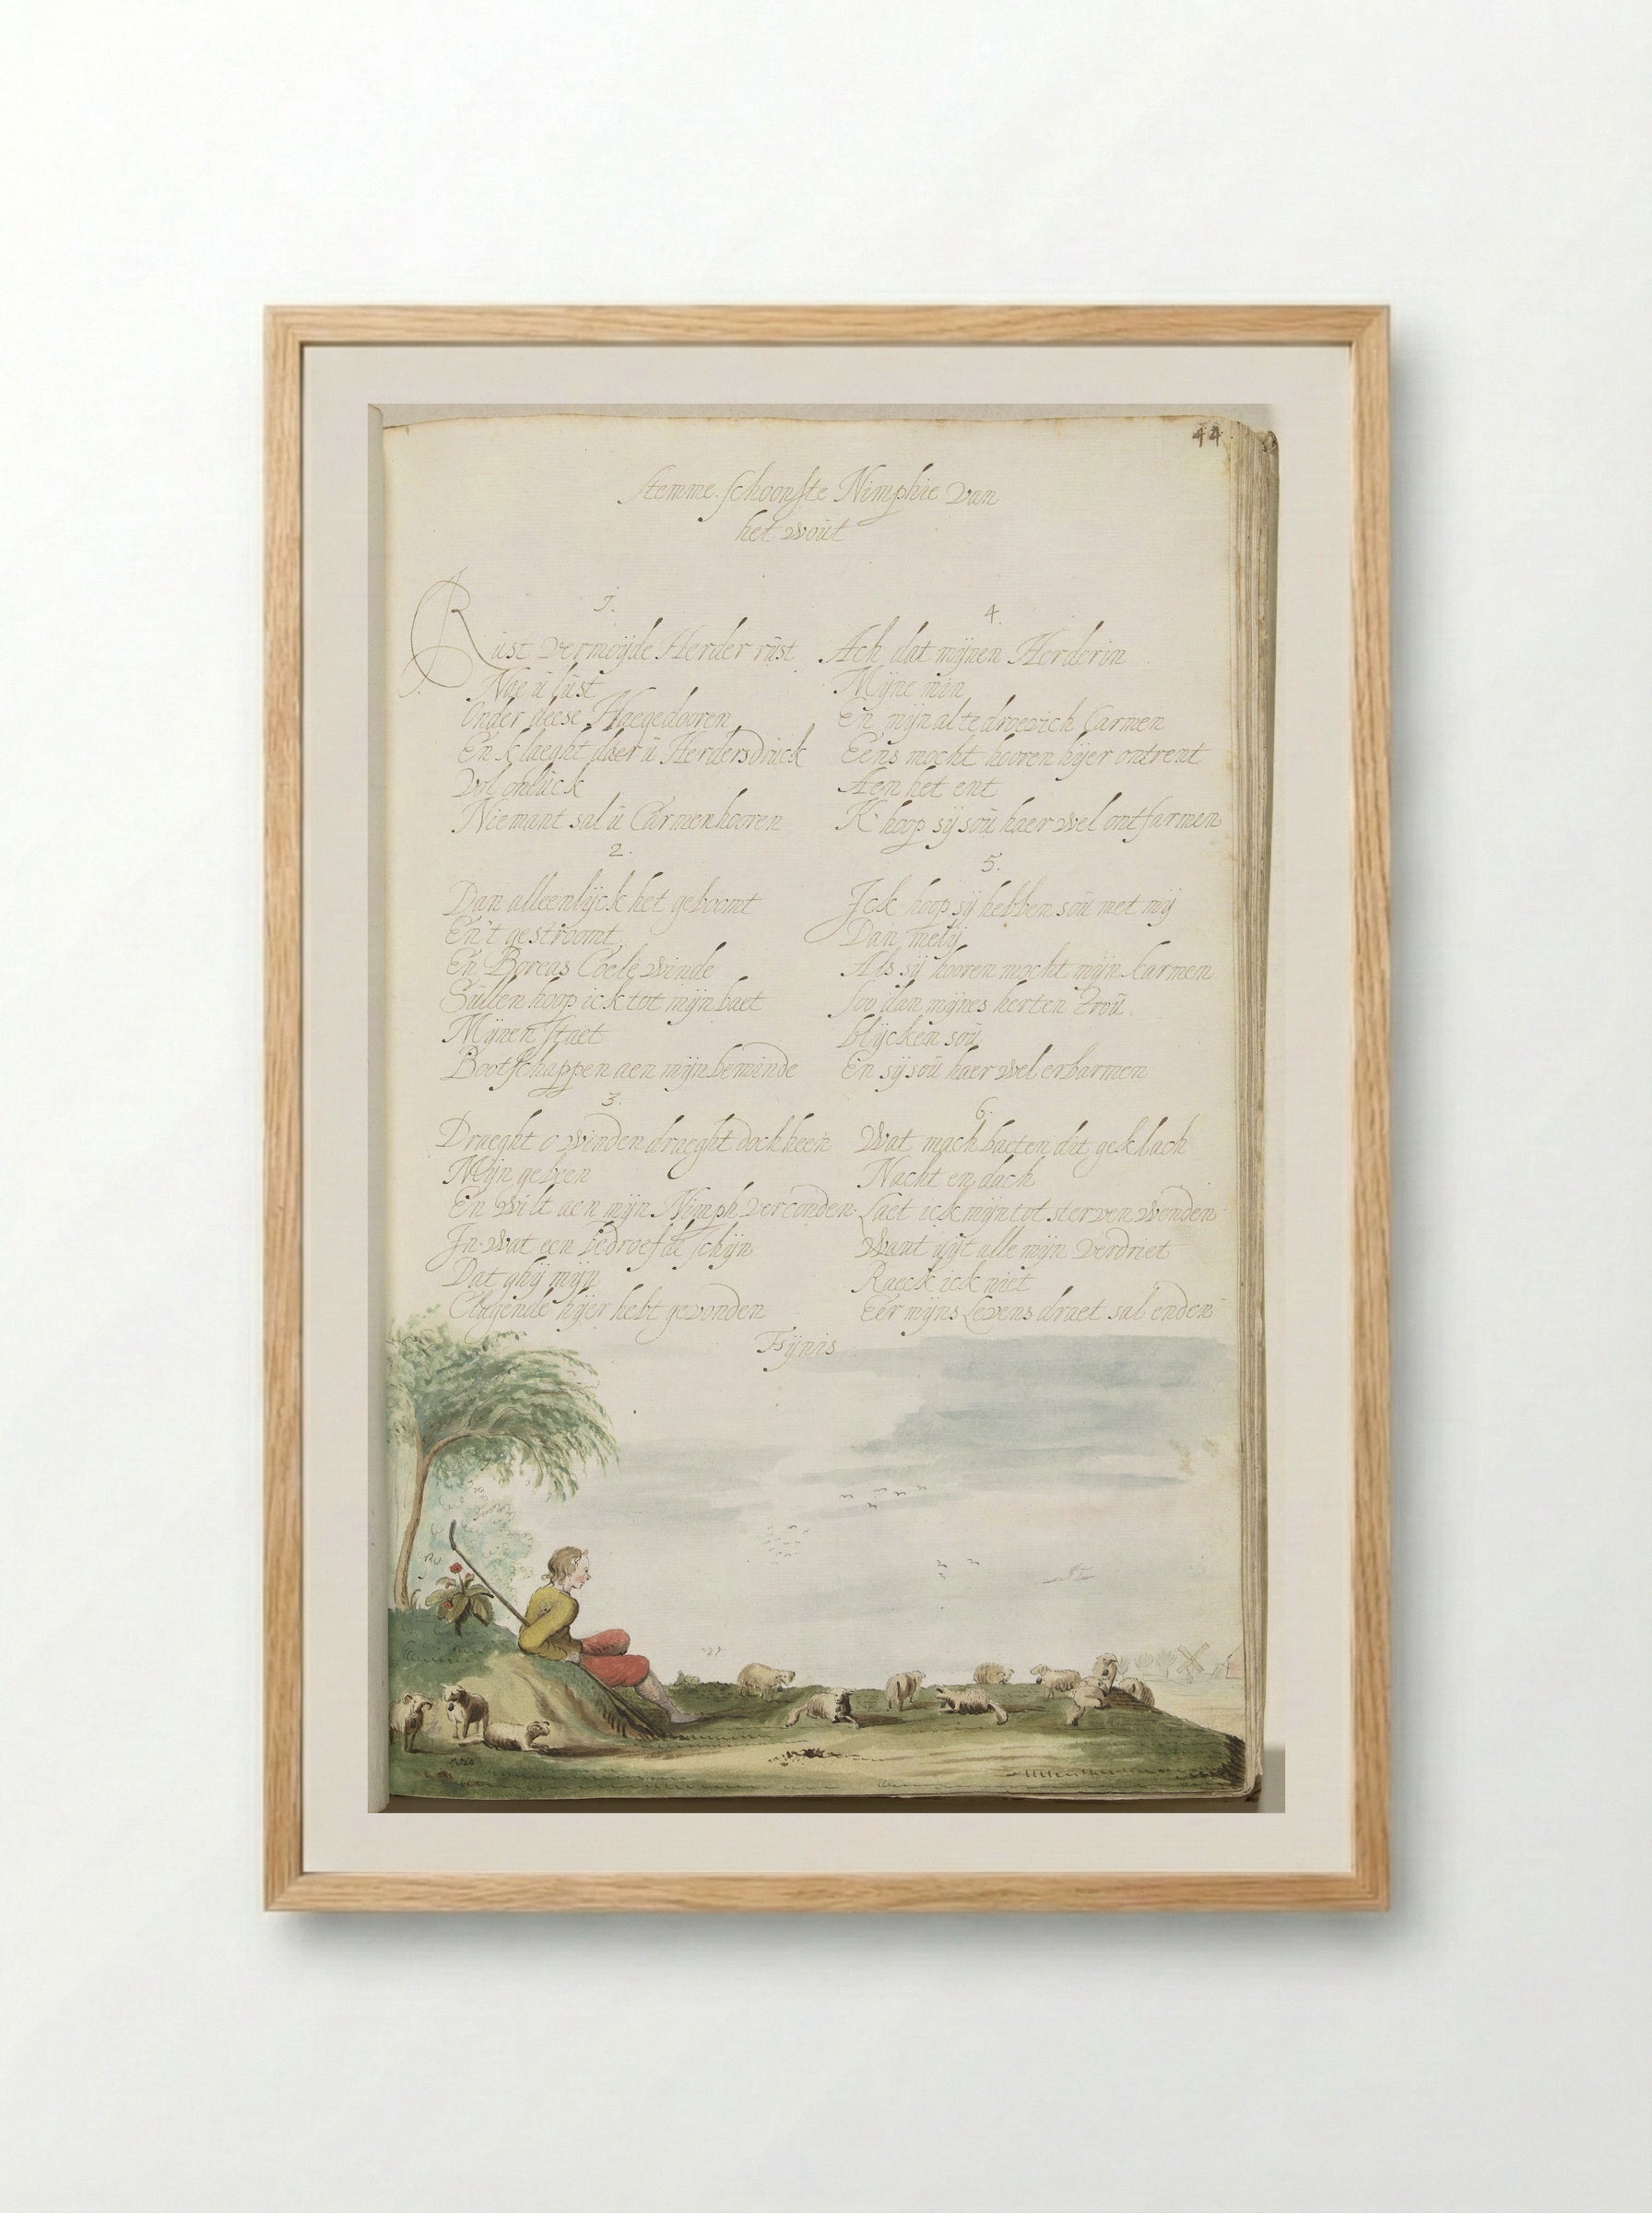 44
Stemme. schoonste Nimphie Van
het wout
1.
Rust vermoijde Herder rust
Nae ú lust
Onder deese Haegedooren
En klaeght daer ú Herdersdruck
Vol onluck
Niemant sal ú Carmen hooren
2.
Dan alleenlijck het geboomt
En't gestroomt
En Boreas Coele winde
Súllen hoop ick tot mijn baet
Mijnen staet
Bootschappen aen mijn beminde
3.
Draeght o winden draeght doch heen
Mijn gebeen
En Wilt aen mijn Nimph Verconden
In Wat een bedroefde schijn
Dat ghij mijn
hijer hebt gevonden
4.
Ach dat mijnen Herderin
Mijne min
En mijn al te droevich Carmen
Eens mocht hooren hijer ontrent
Aen het ent
K' hoop sij soú haer wel ontfarmen
5.
Ick hoop sij hebben soú met mij
Dan melij
Als sij hooren mocht mijn karmen
Soo dan mijnes herten troú
blijcken soú
En sij soú haer wel erbarmen
6.
Wat mach baeten dit geklach
Nacht en dach
Laet ick mijn tot sterven Wenden
Want uijt alle mijn Verdriet
Raeck ick niet
Eer mijns Levens draet sal enden
Fijnis